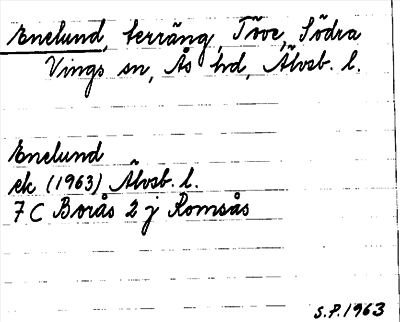 Enelund, terräng, Töve, Södra
Vings sn, Ås hd, Älvsb. l.
Enelund
ek (1963) Älvsb. l.
7 C Borås 2 j Romsås
S.P. 1963